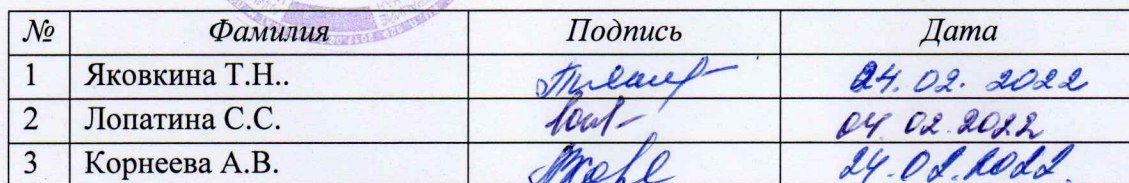 № Фамилия Подпись Дата
1 Яковкина Т.Н.. 24.02.2022
2 Лопатина С.С. 04 02.2022
3 Корнеева А.В. 24.02.2022.